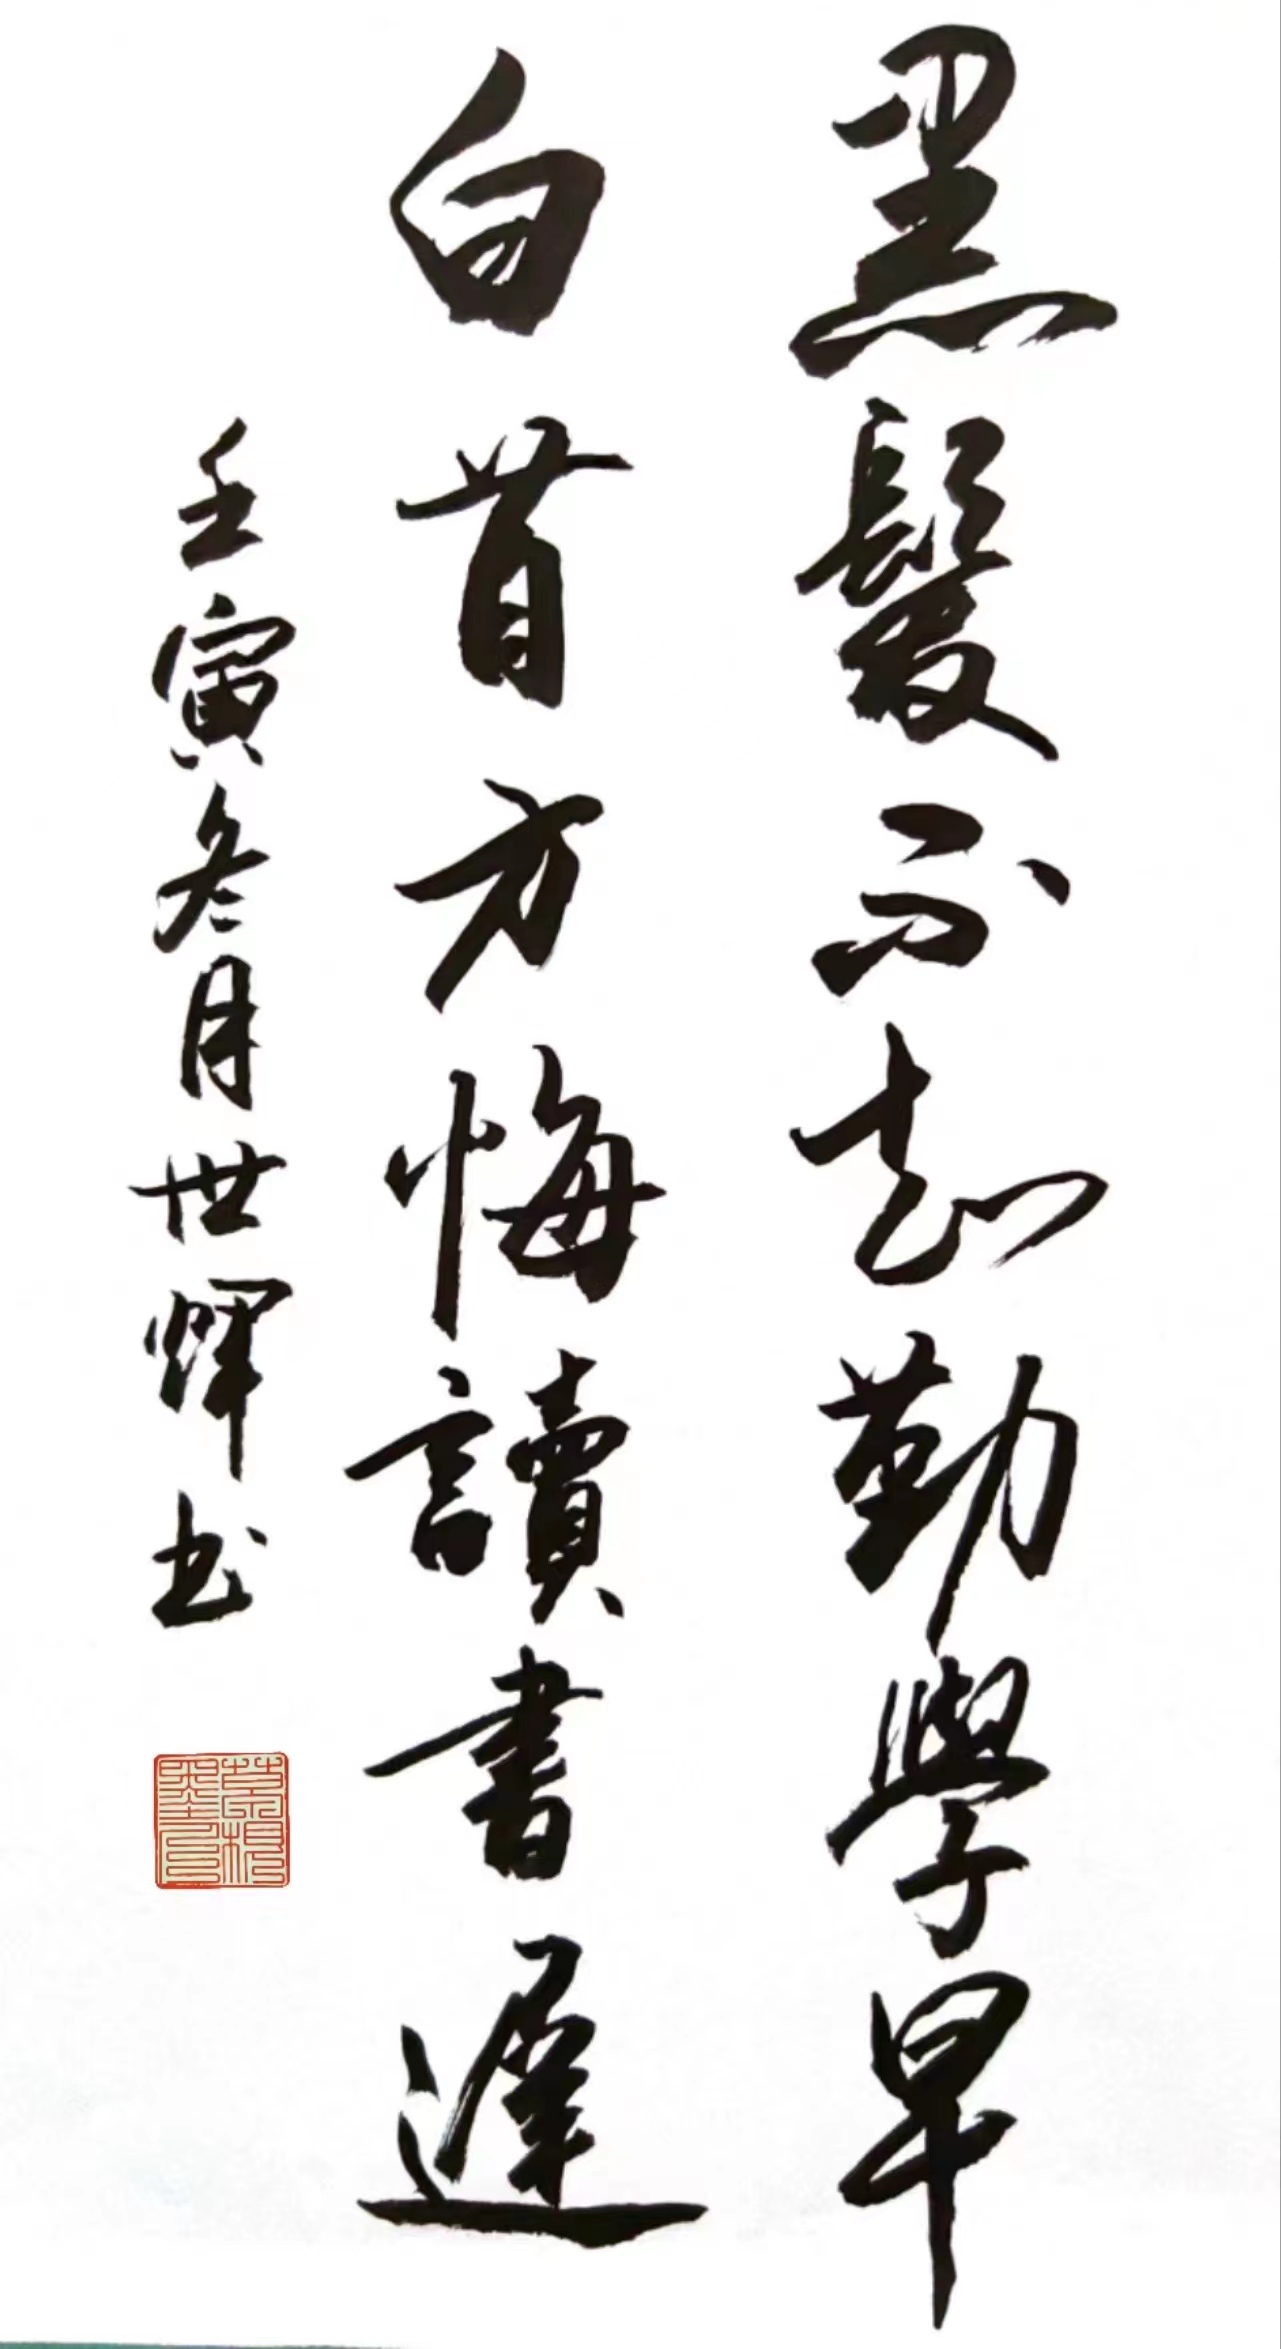 黑髮不知勤學早
白首方悔讀書遲
壬寅冬月世輝书